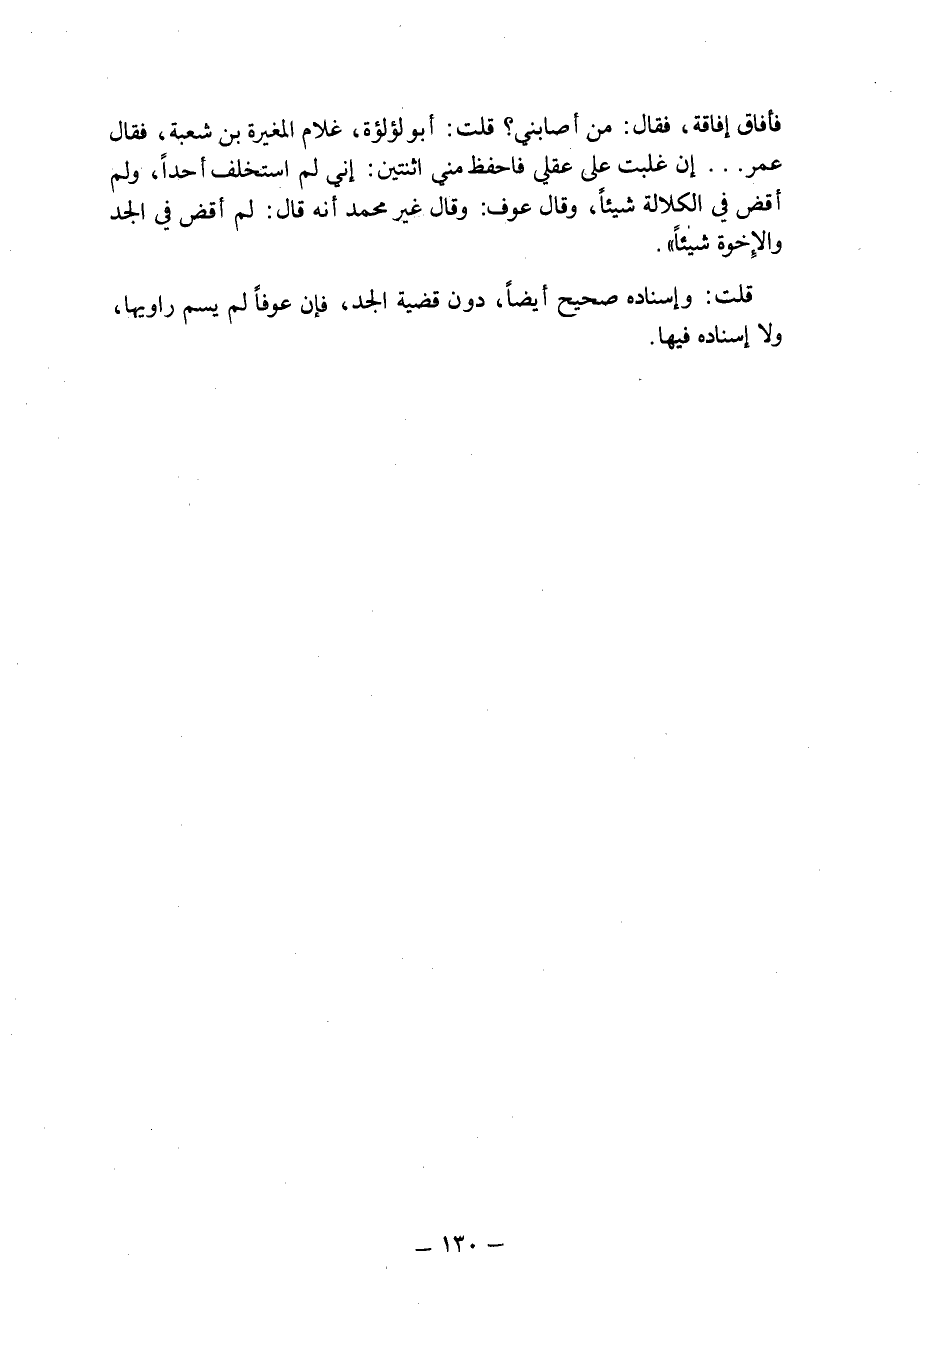 فأفاق إفاقة، فقال: من أصابني؟ قلت: أبو لؤلؤة، غلام المغيرة بن شعبة، فقال
عمر... إن غلبت على عقلي فاحفظ مني اثنتين: إني لم استخلف أحداً، ولم
أقض في الكلالة شيئاً، وقال عوف: وقال غير محمد أنه قال: لم أقض في الجد
والإخوة شيئاً».
قلت: وإسناده صحيح أيضاً، دون قضية الجد، فإن عوفاً لم يسم راويها،
ولا إسناده فيها.
– ١٣٠ –